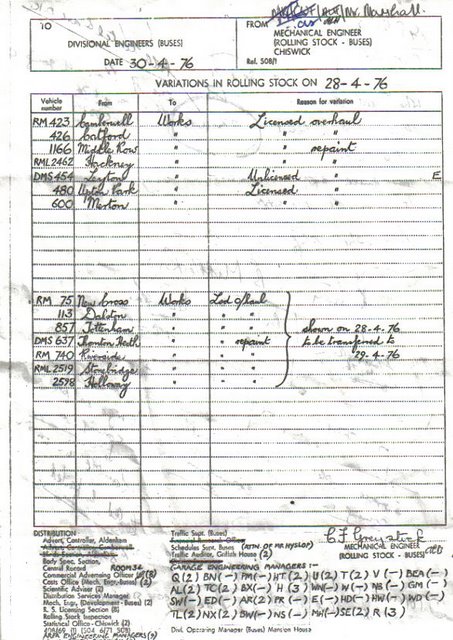 Mr. Marshall.
TO
FROM
DIVISIONAL ENGINEERS (BUSES)
MECHANICAL ENGINEER
(ROLLING STOCK - BUSES)
CHISWICK
DATE 30-4-76
Ref. 508/1
VARIATIONS IN ROLLING STOCK ON 28-4-76
Vehicle number From To Reason for variation
RM 423 Camberwell Works Licensed overhaul
426 Catford " " "
1166 Middle Row " " repaint
RML 2462 Hackney " " "
DMS 454 Leyton " Unlicensed " E
480 Upton Park " Licensed "
600 Merton " " "
RM 75 New Cross Works Lcd o/haul
113 Dalston " " "
857 Tottenham " " " shown on 28-4-76
DMS 637 Thornton Heath " " repaint to be transferred to
RM 740 Riverside " " " 29-4-76
RML 2519 Stonebridge " " "
2598 Holloway " " "
DISTRIBUTION
Advert. Controller, Aldenham
Advert. Controller Camberwell
Body Spec. Section,
Central Record ROOM 32
Commercial Advertising Officer
Costs Office (Mech. Engr. Buses) (2)
Scientific Adviser (2)
Distribution Services Manager
Mech. Engr. (Development - Buses) (2)
R. S. Licensing Section (8)
Rolling Stock Inspection
Statistical Office - Chiswick (2)
AREA ENGINEERING MANAGERS (9)
Traffic Supt. (Buses)
Schedules Supt. Buses (ATTN. OF MR HYSLOP)
Traffic Auditor, Griffith House (2)
MECHANICAL ENGINEER
(ROLLING STOCK - BUSES)
GARAGE ENGINEERING MANAGERS :-
Q (2) BN (-) PM (-) HT (2) U (2) T (2) V (-) BEA (-)
AL (2) TC (2) BX (-) H (3) WN (-) W (-) NB (-) GM (-)
SW (-) ED (-) AR (2) PR (-) E (-) HD (-) HW (-) WD (-)
TL (2) NX (2) BW (-) NS (-) MH (-) SE (2) R (3)
Divl. Operating Manager (Buses) Mansion House